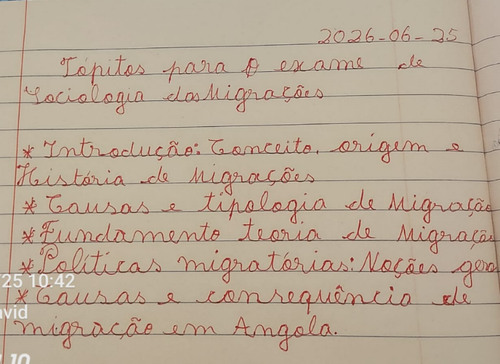 2026-06-25
Tópitos para o exame de
Sociologia das Migrações
* Introdução: Conceito, origem e
História de Migrações
* Causas e tipologia de Migração
* Fundamento teoria de Migração
* Políticas migratórias: Noções gera
* Causas e consequência de
migração em Angola.
25 10:42
vid
10